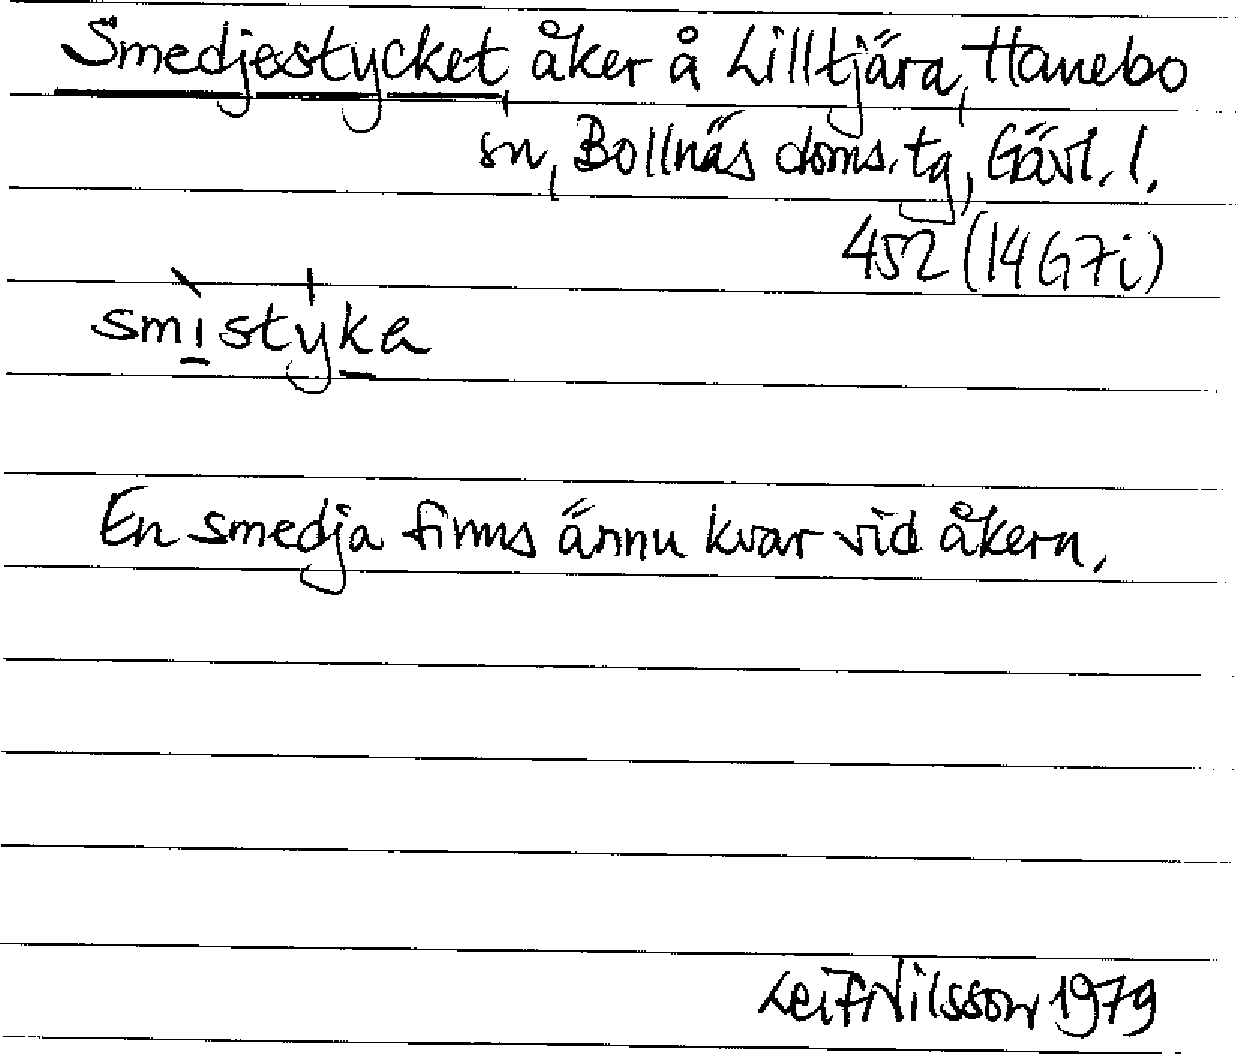 Smedjestycket, åker å Lilltjära, Hanebo
sn, Bollnäs doms. tg, Gävl. l.
452 (14G7i)
smìstýka
En smedja finns ännu kvar vid åkern.
Leif Nilsson 1979